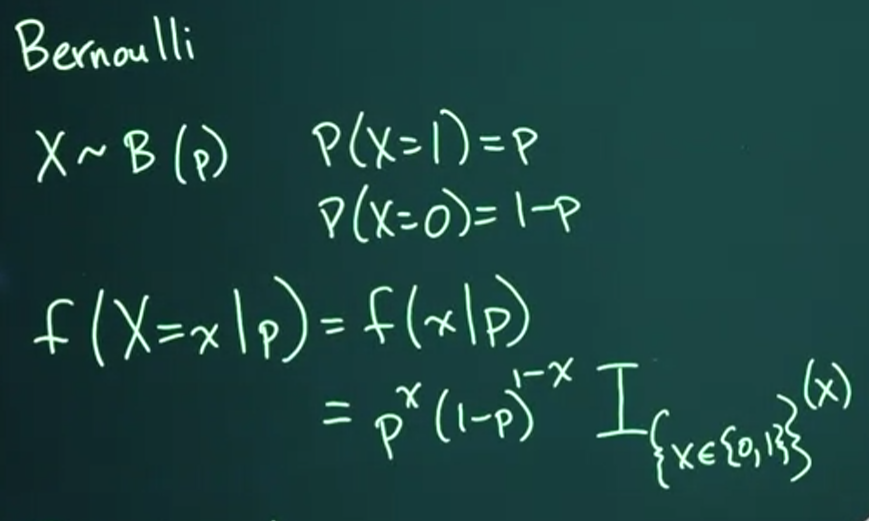 Bernoulli
X ~ B (p) P(X=1)=p
P(X=0)= 1-p
f(X=x|p)= f(x|p)
= p^x (1-p)^{1-x} I_{{x∈{0,1}}}(x)